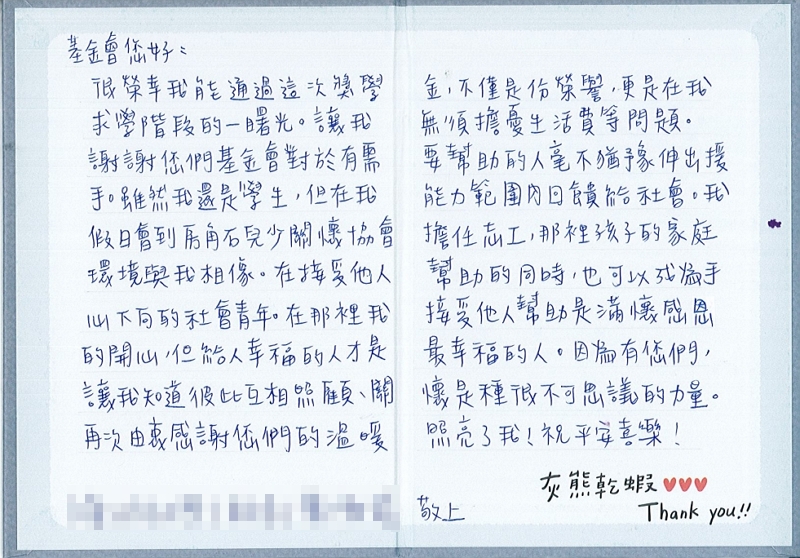 基金會您好：
很榮幸我能通過這次獎學金，不僅是份榮譽，更是在我
求學階段的一曙光。讓我無須擔憂生活費等問題。
謝謝您們基金會對於有需要幫助的人毫不猶豫伸出援
手。雖然我還是學生，但在我能力範圍內回饋給社會。我
假日會到房角石兒少關懷協會擔任志工，那裡孩子的家庭
環境與我相像。在接受他人幫助的同時，也可以成為手
心下向的社會青年。在那裡我接受他人幫助是滿懷感恩
的開心，但給人幸福的人才是最幸福的人。因為有您們，
讓我知道彼此互相照顧、關懷是種很不可思議的力量。
再次由衷感謝您們的溫暖照亮了我！祝平安喜樂！
敬上
灰熊乾蝦♥♥♥
Thank you!!